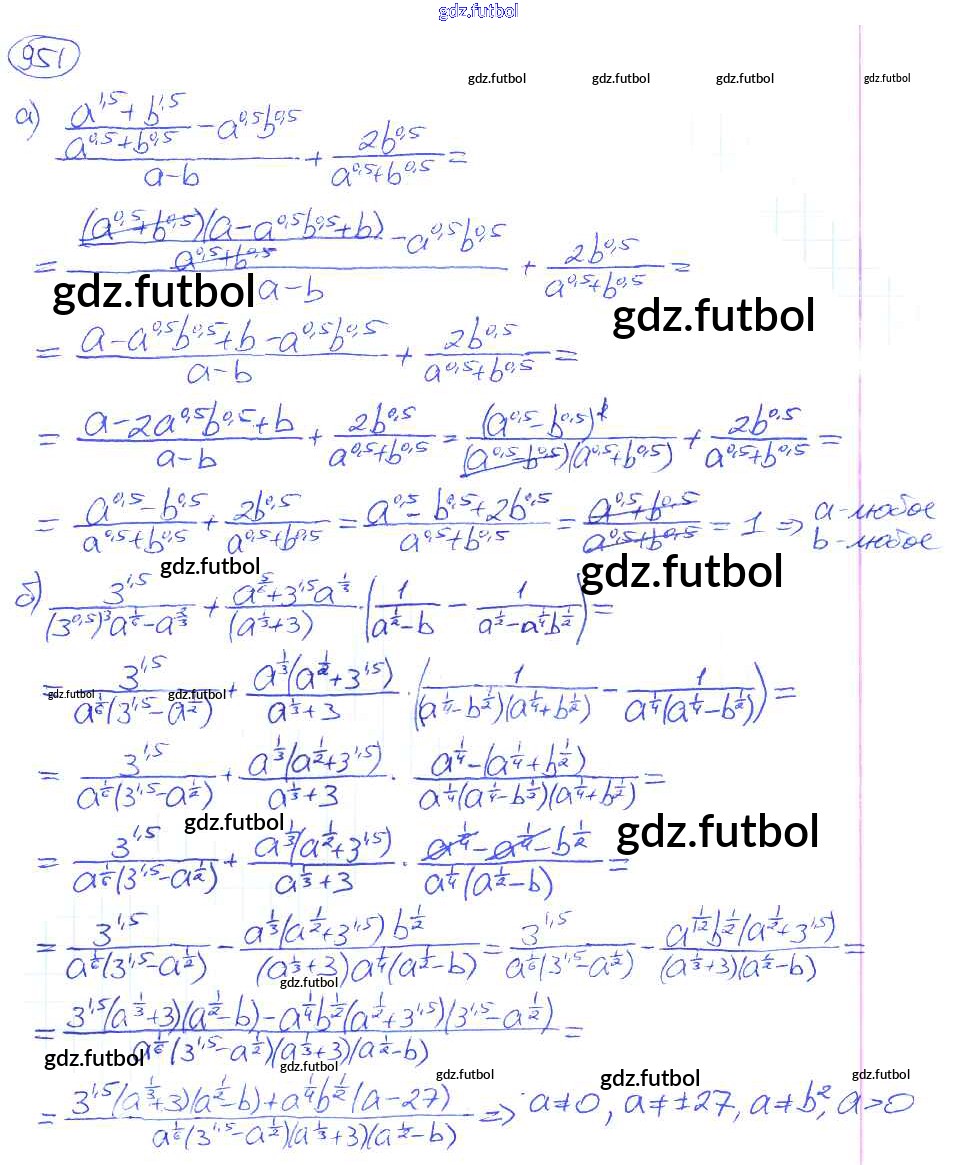 gdz.futbol
951
gdz.futbol gdz.futbol gdz.futbol gdz.futbol
а) (a^1,5 + b^1,5)/(a^0,5 + b^0,5) − a^0,5 b^0,5 / (a−b) + 2b^0,5/(a^0,5 + b^0,5) =
= ((a^0,5 + b^0,5)(a − a^0,5 b^0,5 + b)/(a^0,5 + b^0,5) − a^0,5 b^0,5)/(a−b) + 2b^0,5/(a^0,5 + b^0,5) =
gdz.futbol gdz.futbol
= (a − a^0,5 b^0,5 + b − a^0,5 b^0,5)/(a−b) + 2b^0,5/(a^0,5 + b^0,5) =
= (a − 2a^0,5 b^0,5 + b)/(a−b) + 2b^0,5/(a^0,5 + b^0,5) = (a^0,5 − b^0,5)^2/((a^0,5 − b^0,5)(a^0,5 + b^0,5)) + 2b^0,5/(a^0,5 + b^0,5) =
= (a^0,5 − b^0,5)/(a^0,5 + b^0,5) + 2b^0,5/(a^0,5 + b^0,5) = (a^0,5 − b^0,5 + 2b^0,5)/(a^0,5 + b^0,5) = (a^0,5 + b^0,5)/(a^0,5 + b^0,5) = 1 ⇒ a-любое b-любое
gdz.futbol gdz.futbol
б) 3^1,5/((3^0,5)^3 a^1/6 − a^2/3) + (a^5/6 + 3^1,5 a^1/3)/(a^1/3 + 3) · (1/(a^1/2 − b) − 1/(a^1/2 − a^1/4 b^1/2)) =
= 3^1,5/(a^1/6(3^1,5 − a^1/2)) + a^1/3(a^1/2 + 3^1,5)/(a^1/3 + 3) · (1/((a^1/4 − b^1/2)(a^1/4 + b^1/2)) − 1/(a^1/4(a^1/4 − b^1/2))) =
gdz.futbol gdz.futbol
= 3^1,5/(a^1/6(3^1,5 − a^1/2)) + a^1/3(a^1/2 + 3^1,5)/(a^1/3 + 3) · (a^1/4 − (a^1/4 + b^1/2))/(a^1/4(a^1/4 − b^1/2)(a^1/4 + b^1/2)) =
gdz.futbol gdz.futbol
= 3^1,5/(a^1/6(3^1,5 − a^1/2)) + a^1/3(a^1/2 + 3^1,5)/(a^1/3 + 3) · (a^1/4 − a^1/4 − b^1/2)/(a^1/4(a^1/2 − b)) =
= 3^1,5/(a^1/6(3^1,5 − a^1/2)) − a^1/3(a^1/2 + 3^1,5) b^1/2/((a^1/3 + 3) a^1/4(a^1/2 − b)) = 3^1,5/(a^1/6(3^1,5 − a^1/2)) − a^1/12 b^1/2(a^1/2 + 3^1,5)/((a^1/3 + 3)(a^1/2 − b)) =
gdz.futbol
= (3^1,5(a^1/3 + 3)(a^1/2 − b) − a^1/4 b^1/2(a^1/2 + 3^1,5)(3^1,5 − a^1/2))/(a^1/6(3^1,5 − a^1/2)(a^1/3 + 3)(a^1/2 − b)) =
gdz.futbol gdz.futbol gdz.futbol gdz.futbol gdz.futbol
= (3^1,5(a^1/3 + 3)(a^1/2 − b) + a^1/4 b^1/2(a − 27))/(a^1/6(3^1,5 − a^1/2)(a^1/3 + 3)(a^1/2 − b)) ⇒ a≠0, a≠±27, a≠b^2, a>0